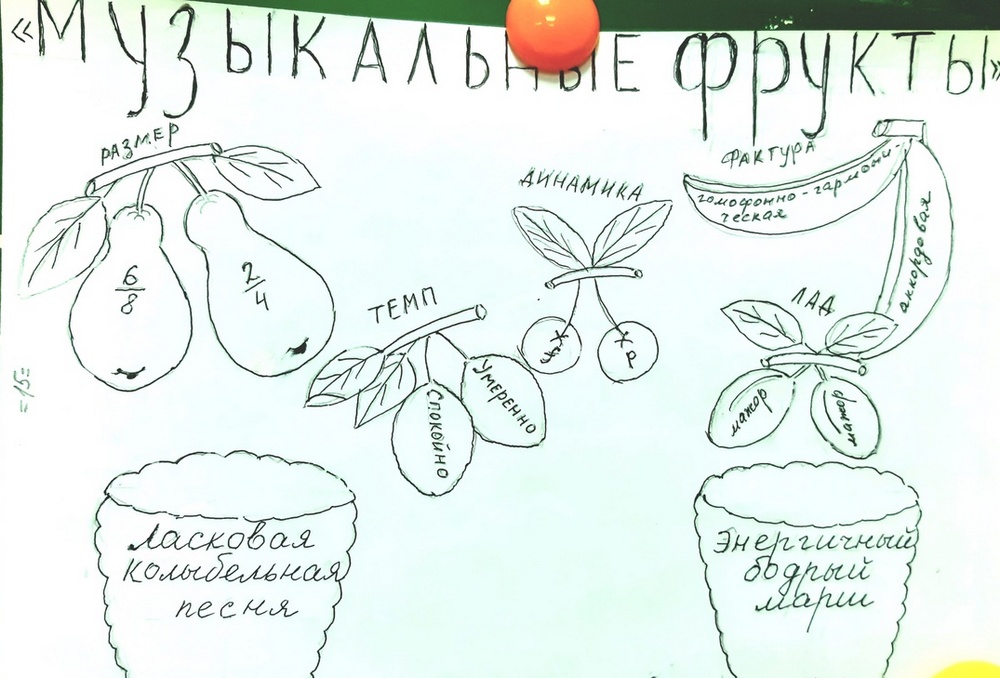 «МУЗЫКАЛЬНЫЕ ФРУКТЫ»
РАЗМЕР
6
8
2
4
ТЕМП
СПОКОЙНО
УМЕРЕННО
ДИНАМИКА
ФАКТУРА
гомофонно-гармони-
ческая
аккордовая
ЛАД
мажор
мажор
=15=
Ласковая
колыбельная
песня
Энергичный
бодрый
марш